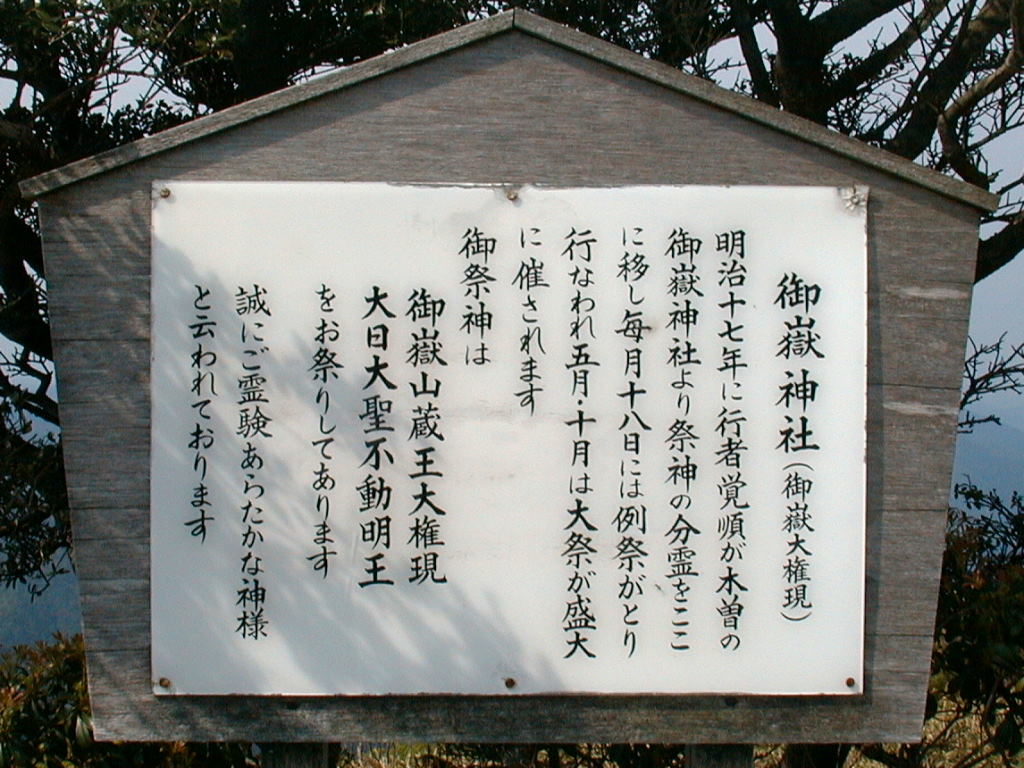 御嶽神社（御嶽大権現）
明治十七年に行者覚順が木曽の
御嶽神社より祭神の分霊をここ
に移し毎月十八日には例祭がとり
行なわれ五月・十月は大祭が盛大
に催されます
御祭神は
御嶽山蔵王大権現
大日大聖不動明王
をお祭りしてあります
誠にご霊験あらたかな神様
と云われております